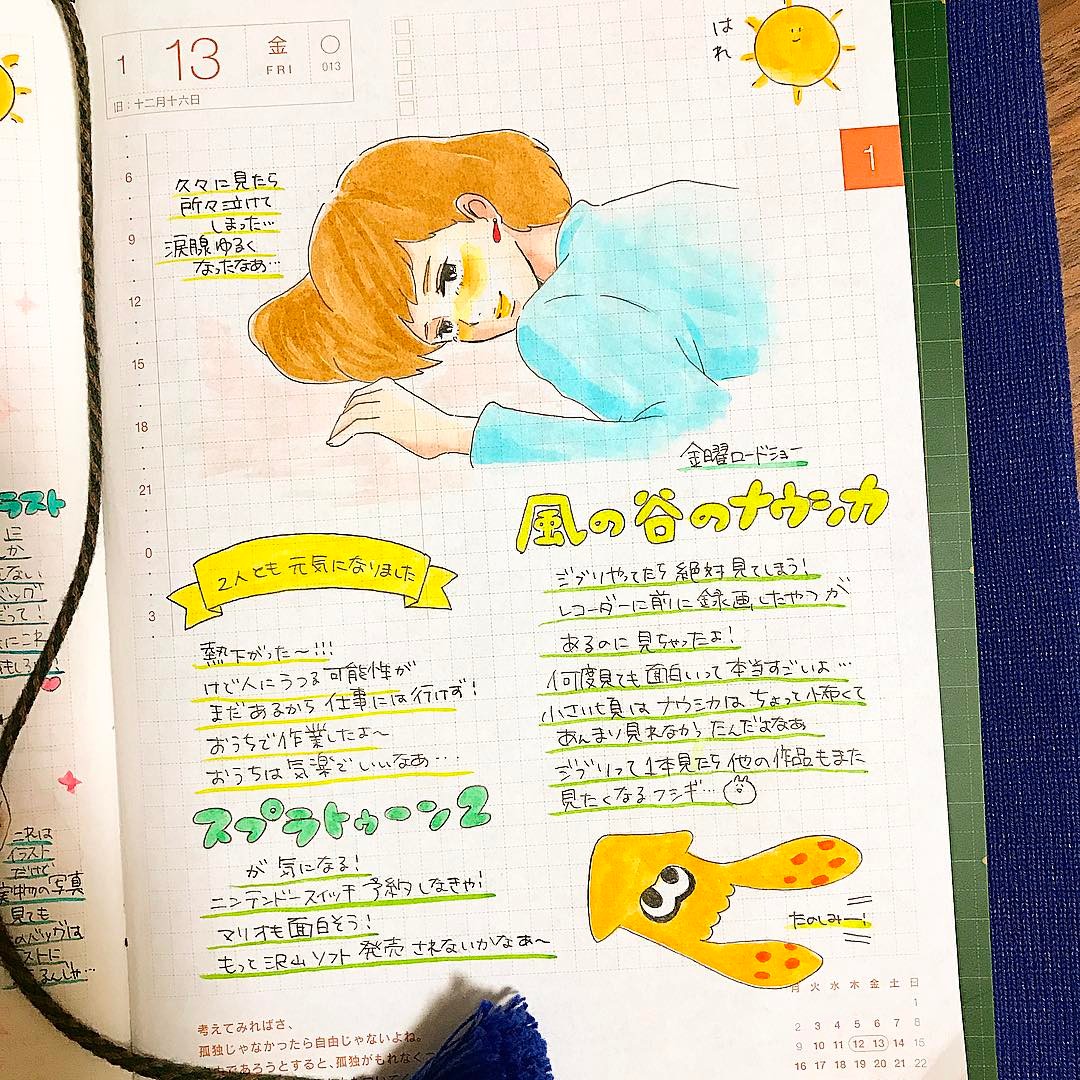 1 13 金 FRI 013
旧:十二月十六日
はれ
1
久々に見たら
所々泣けて
しまった…
涙腺ゆるく
なったなあ…
6
9
12
15
18
21
0
3
金曜ロードショー
風の谷のナウシカ
ジブリやってたら絶対見てしまう!
レコーダーに前に録画したやつが
あるのに見ちゃったよ!
何度見ても面白いって本当すごいよ…
小さい頃はナウシカはちょっと怖くて
あんまり見れなかったんだよなぁ
ジブリって1本見たら他の作品もまた
見たくなるフシギ…
2人とも元気になりました
熱下がった〜!!!
けど人にうつる可能性が
まだあるから仕事には行けず!
おうちで作業したよ〜
おうちは気楽でいいなぁ…
スプラトゥーン2
が気になる!
ニンテンドースイッチ予約しなきゃ!
マリオも面白そう!
もっと沢山ソフト発売されないかなぁ〜
たのしみー!
考えてみればさ、
孤独じゃなかったら自由じゃないよね。
であろうとすると、孤独がもれなく
月 火 水 木 金 土 日
1
2 3 4 5 6 7 8
9 10 11 12 13 14 15
16 17 18 19 20 21 22
ラスト
か
ない
バッグ
だって!
にこれ
これは
イラスト
だけど
実物の写真
見ても
のバッグは
ストに
るんじゃ…